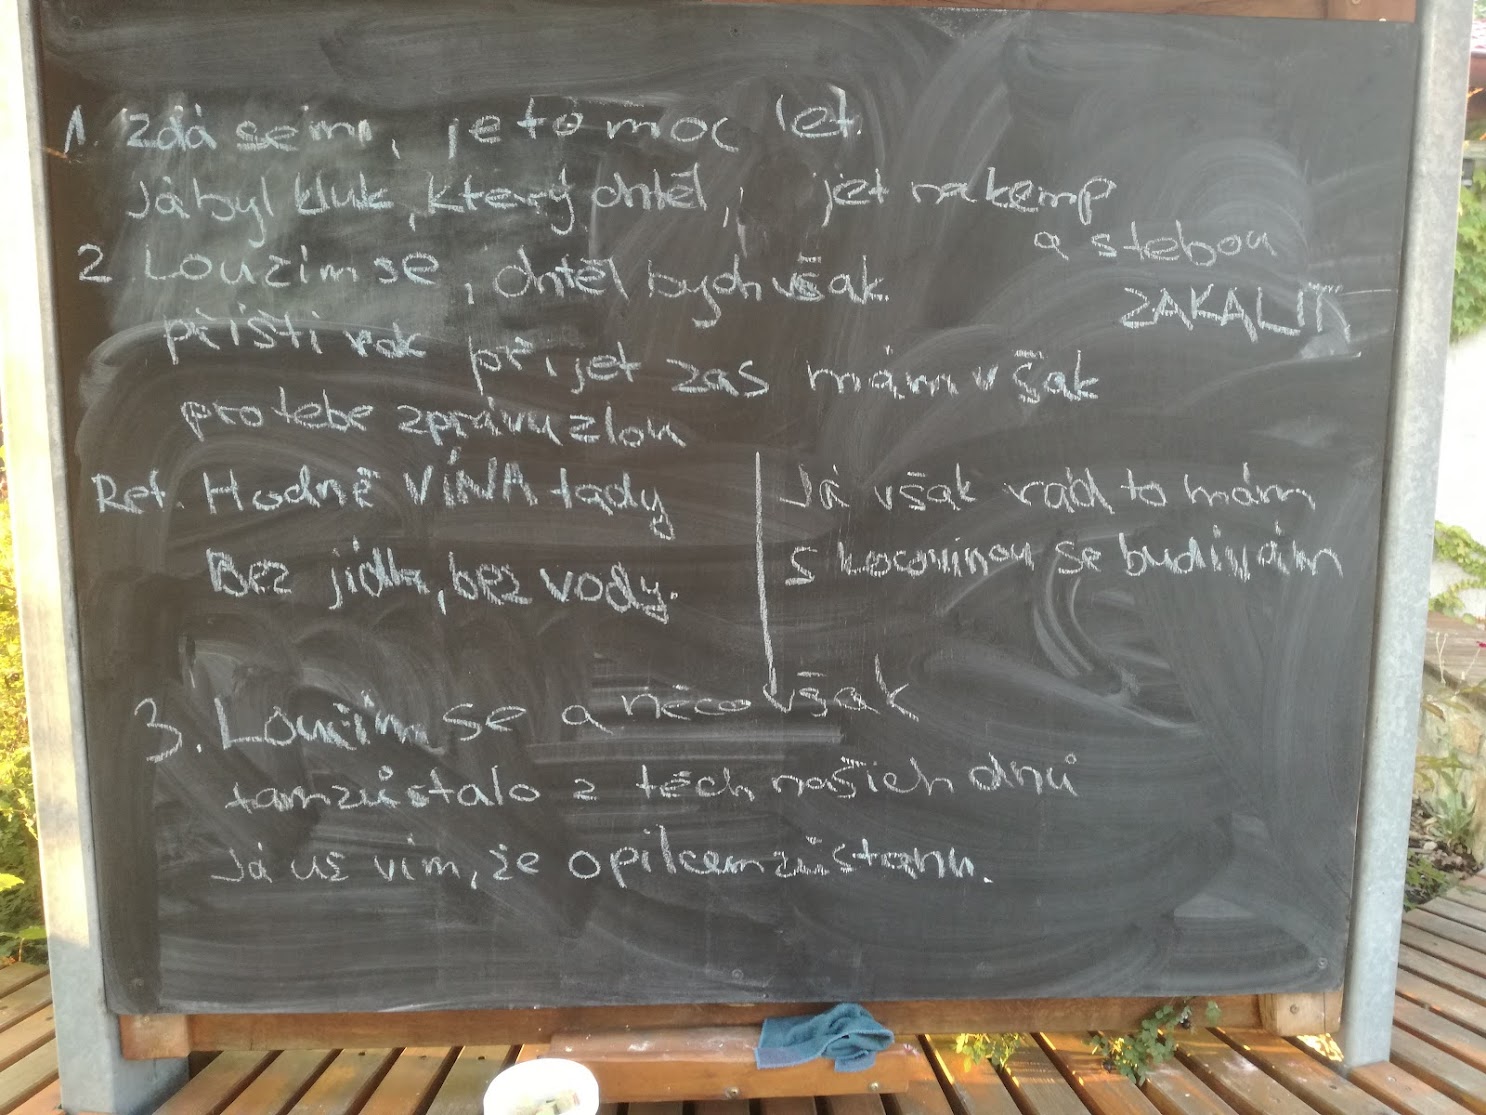 1. Zdá se mi, je to moc let.
Já byl kluk, který chtěl, jet na kemp
a s tebou
ZAKALIT
2 Loučim se, chtěl bych však.
příští rok přijet zas mám však
pro tebe zprávu zlou
Ref. Hodně VÍNA tady
Bez jídla, bez vody.
Já však rád to mám
S kocovinou se budívám
3. Loučim se a něco však
tam zůstalo z těch našich dnů
Já už vím, že opilcem zůstanu.